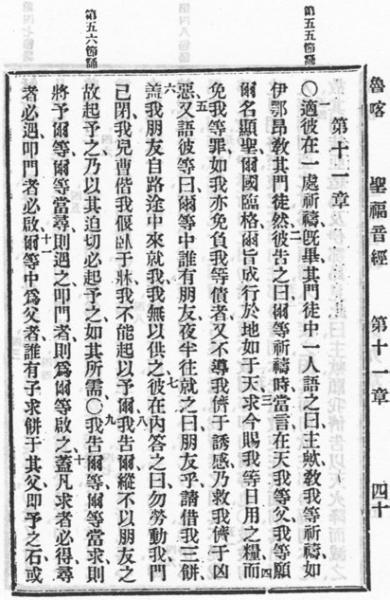 魯喀 聖福音經 第十一章 四十
第五五箇誦
第五六箇誦
第十一章
一
○適彼在一處祈禱、旣畢其門徒中一人語之曰主歟教我等祈禱如
二
伊鄂昂教其門徒然彼告之曰爾等祈禱時當言在天我等父我等願
三 四
爾名顯聖爾國臨格爾旨成行於地如于天求今賜我等日用之糧而
免我等罪如我亦免負我等債者又不導我儕于誘感乃救我儕于凶
五
惡又語彼等曰爾等中誰有朋友夜半往就之曰朋友乎請借我三餅
六 七
盖我朋友自路途中來就我我無以供之彼在內答之曰勿勞動我門
八
已閉我兒曹偕我偃臥于牀我不能起以予爾我告爾縱不以朋友之
九
故起予之乃以其迫切必起予之如其所需○我告爾等爾等當求則
十
將予爾等爾等當尋則遇之叩門者則爲爾等啟之蓋凡求者必得尋
十一
者必遇叩門者必啟爾等中爲父者誰有子求餅于其父卽予之石或